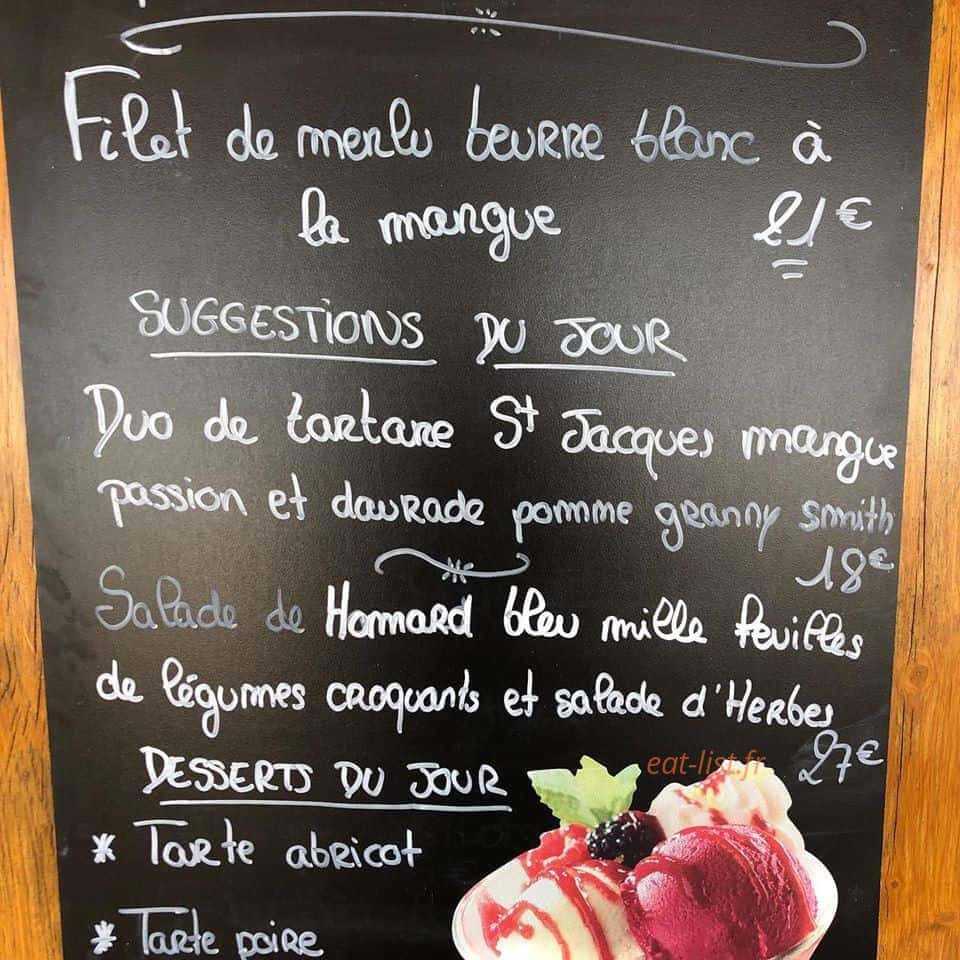 Filet de merlu beurre blanc à
la mangue 21€
SUGGESTIONS DU JOUR
Duo de tartare St Jacques mangue
passion et daurade pomme granny smith
18€
Salade de Hommard bleu mille feuilles
de légumes croquants et salade d'Herbes
27€
eat-list.fr
DESSERTS DU JOUR
* Tarte abricot
* Tarte poire